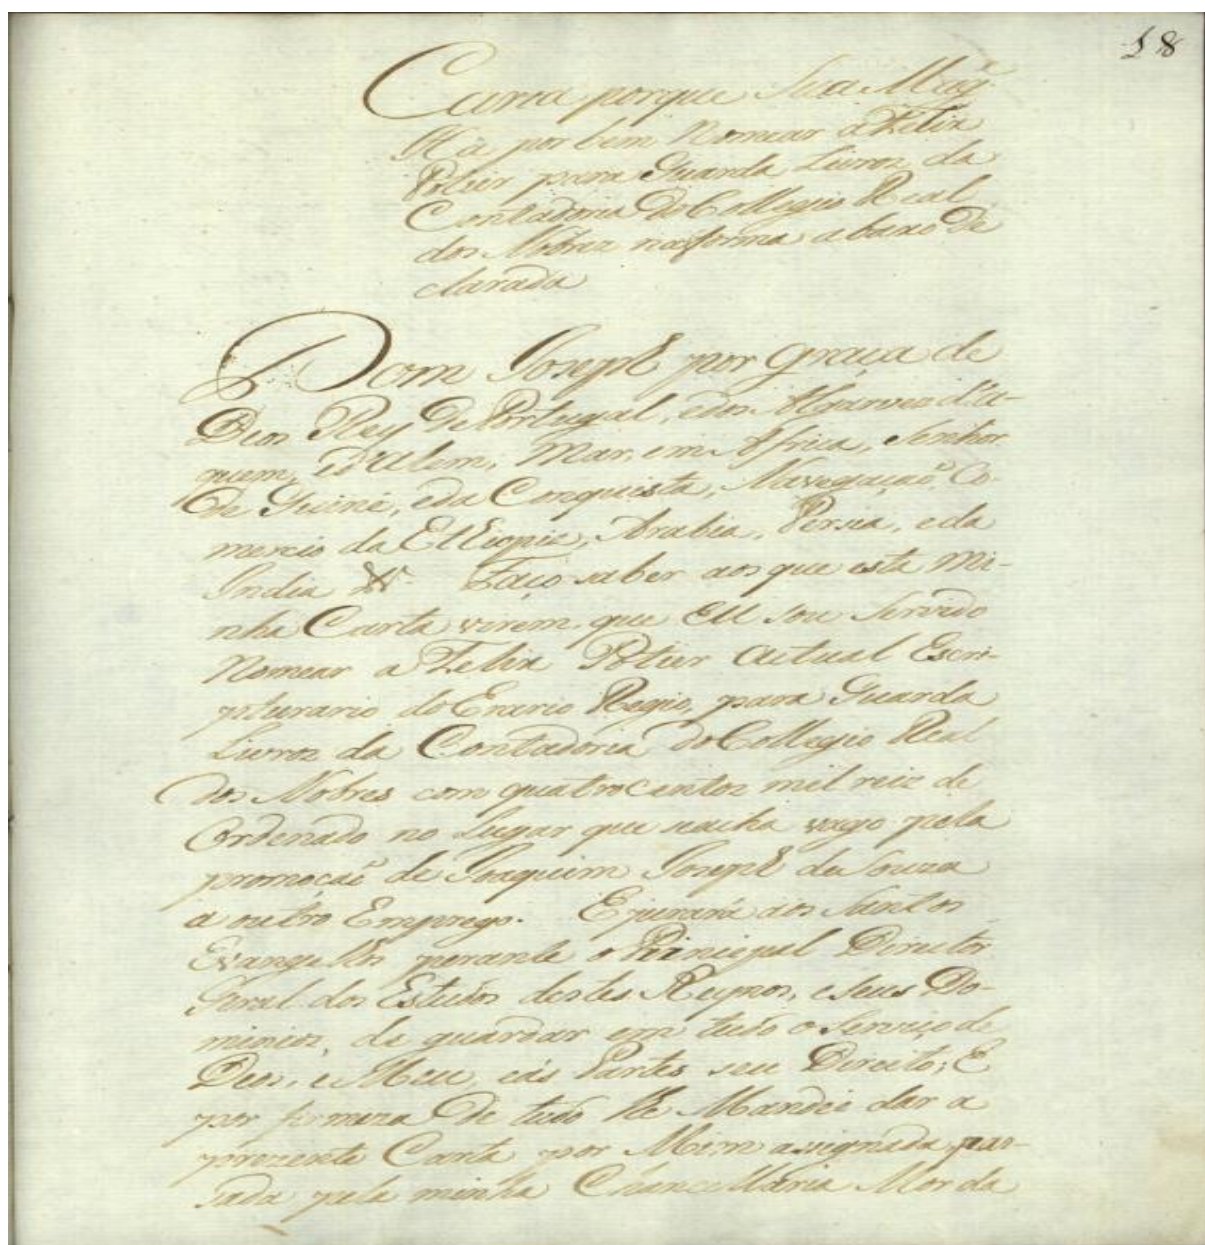 18
Carta porque Sua Mag.ᵉ
Ha por bem Nomear a Felix
Potier para Guarda Livroz da
Contadoria do Collegio Real
dos Nobrez na forma abaxo de
clarada
Dom Joseph por graça de
Deos Rey de Portugal, e dos Algarves d'a-
quem, e d'Alem, Mar, em Africa, Senhor
de Guiné, e da Conquista, Navegação, Co-
mercio da Ethiopia, Arabia, Persia, e da
India &ª Faço saber aos que esta mi-
nha Carta virem, que EU sou Servido
Nomear a Felix Potier actual Escri-
pturario do Erario Regio, para Guarda
Livroz da Contadoria do Collegio Real
dos Nobres com quatrocentoz mil reiz de
Ordenado no Lugar que seacha vago pela
promoçaõ de Joaquim Joseph de Souza
a outro Emprego. E jurará aos Santos
Evangelhos perante o Principal Director
Geral dos Estudos destes Reynos, e seus Do-
minios, de guardar em tudo o Serviço de
Deos, e Meu, e ás Partes seu Direito; E
por firmeza de tudo lhe Mandei dar a
prezente Carta por Mim assignada, pas-
sada pela minha Chancellaria Mor da